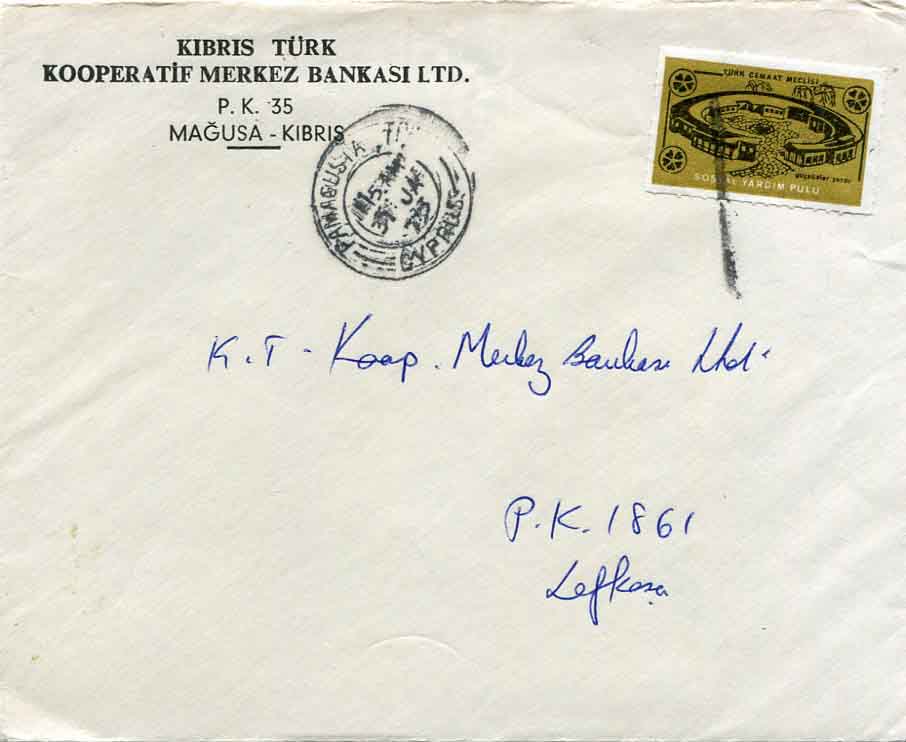 KIBRIS TÜRK
KOOPERATİF MERKEZ BANKASI LTD.
P. K. 35
MAĞUSA - KIBRIS
FAMAGUSTA
CYPRUS
TÜRK CEMAAT MECLİSİ
göçmenler yurdu
SOSYAL YARDIM PULU
K.T - Koop. Merkez Bankası Ltd.
P.K. 1861
Lefkoşa